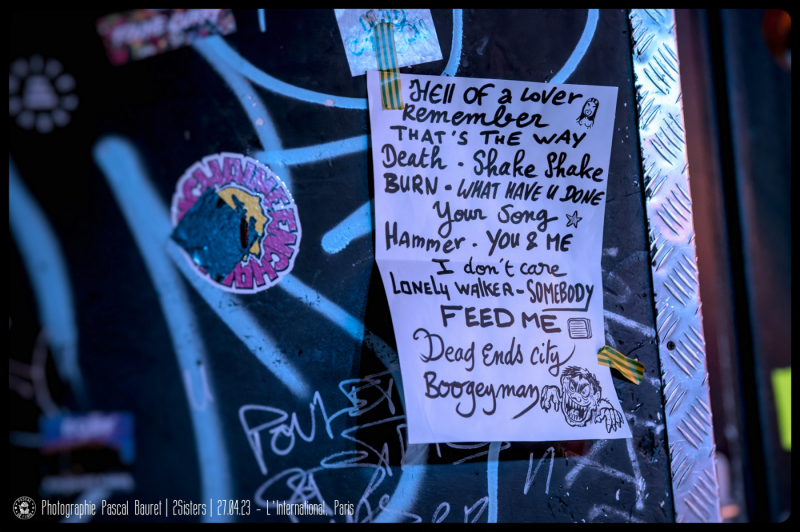 HELL OF a LOVER
Remember
THAT'S THE WAY
Death - Shake Shake
BURN - WHAT HAVE U DONE
Your Song
Hammer - YOU & ME
I don't care
LONELY WALKER - SOMEBODY
FEED ME
Dead Ends city
Boogeyman
Photographie Pascal Bauret | 2Sisters | 27.04.23 - L'International, Paris